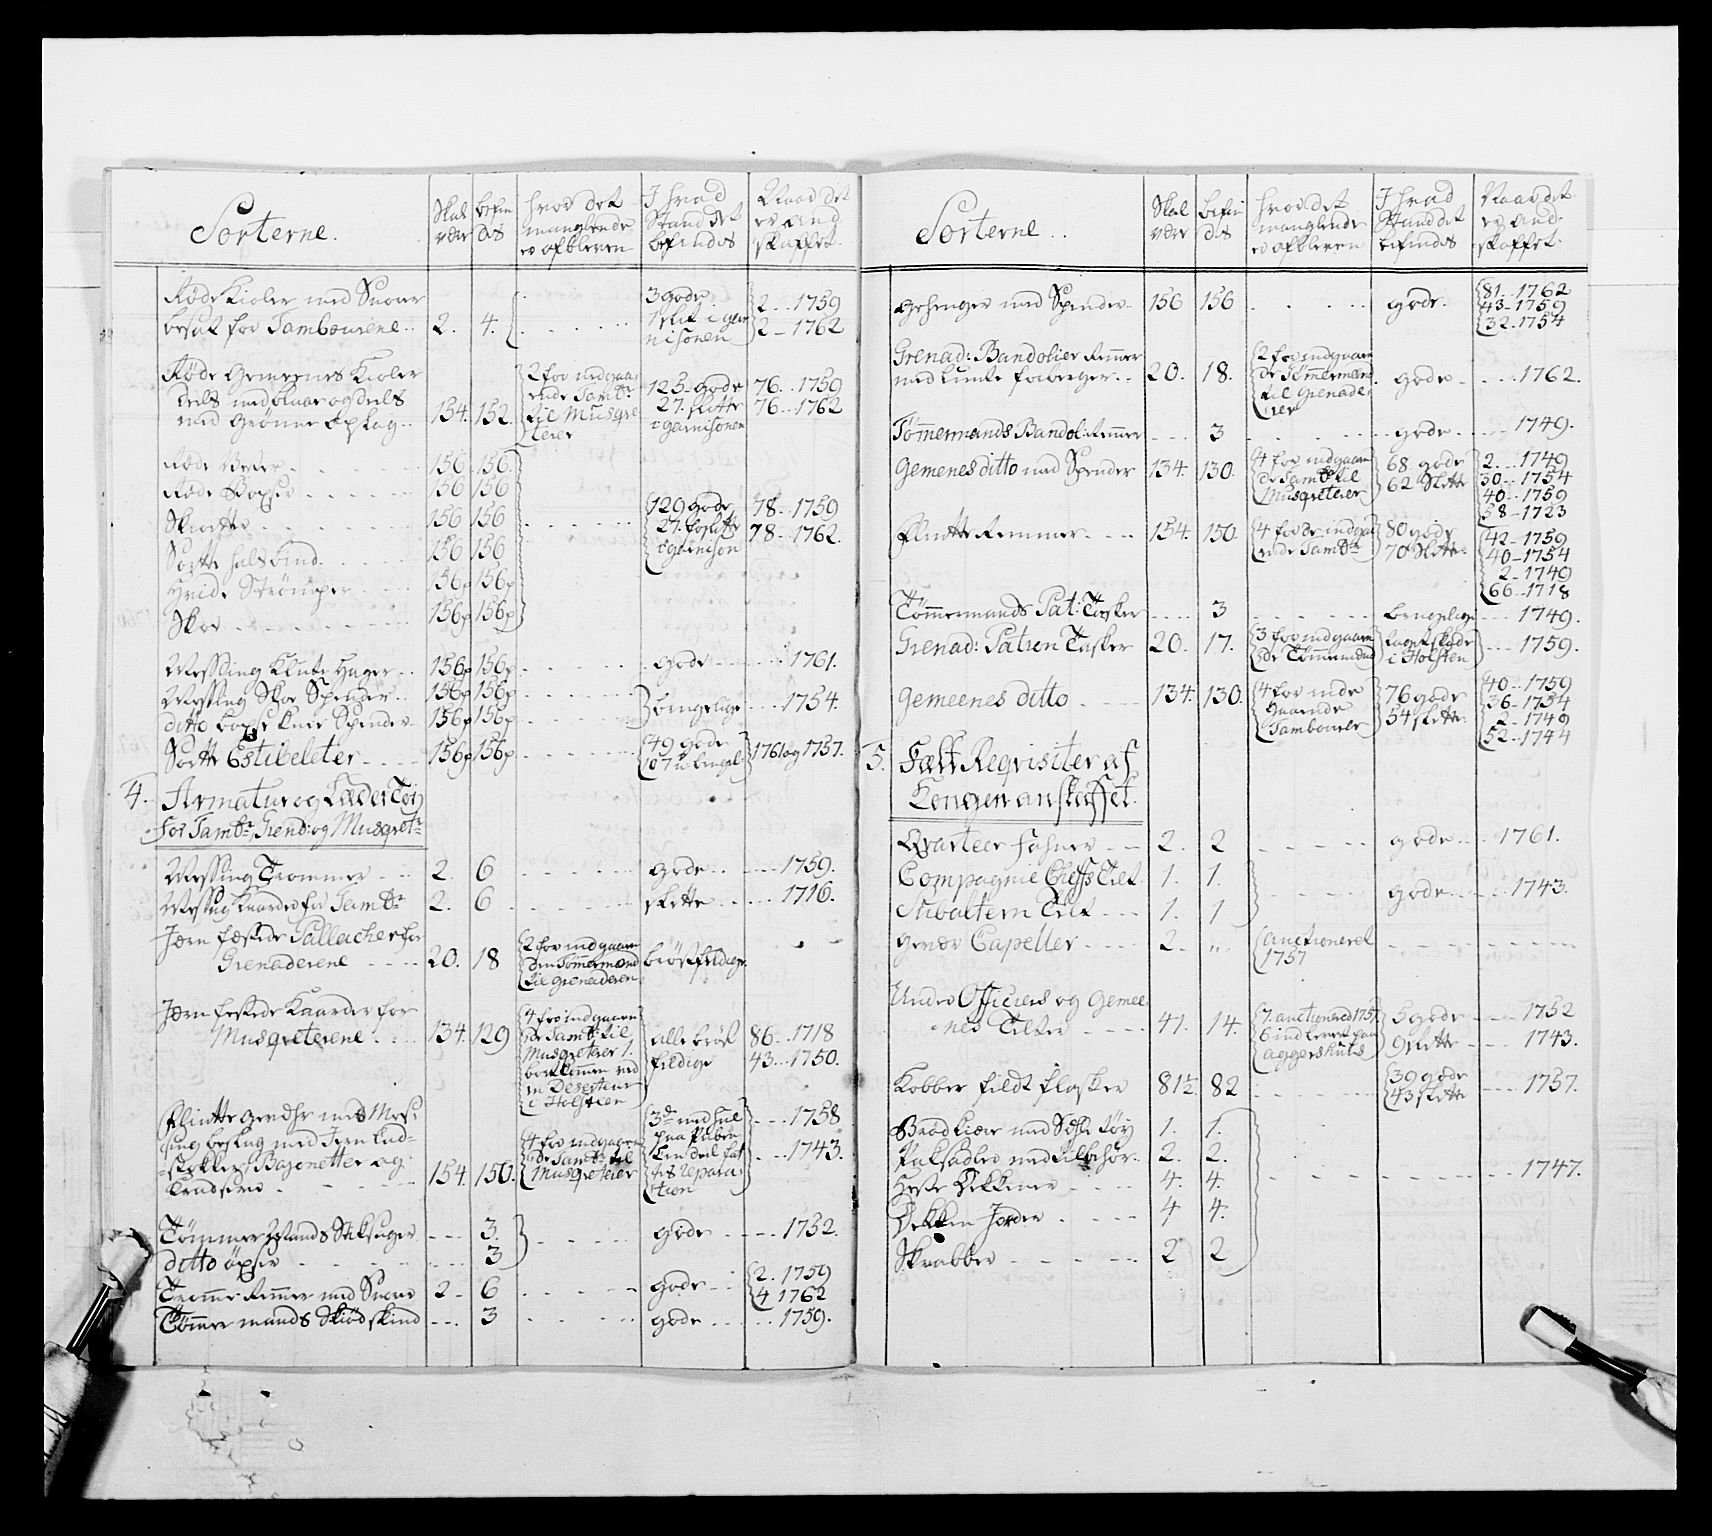 Sorterne.
Skal være
befindes
hvor det manglende er afbleven
I hvad Stand det befindes
Naar det er and skaffet.
Røde Kioler med Snorer
besat for Tambourene.. 2. 4. 3 gode 1 slet i garnisonen 2 - 1759 2 - 1762
Røde Gemeenes Kioler
deels med blaae og deels
med Grønne Opslag.. 154. 152. 2 for indgaaende Tambr til Musqueteier 125 gode 27 slette i garnisonen 76 - 1759 76 - 1762
Røde Vester 156 156.
Røde Boxser 156 156
Skiorter 156 156 129 gode 27 slette i garnison 78 - 1759 78 - 1762.
Sorte halsbind 156 156
Hvide Strømper 156p 156p
Skoe 156p 156p
Messing Knæe Hager.. 156p 156p gode 1761.
Messing Skoe Spender.. 156p 156p brugelige 1754.
ditto boxse knæe Spender 156p 156p
Sorte Estibeletter 156p 156p 49 gode 107 ubrugel: 1761 og 1757.
4. Armatur og Læder Tøy
for Tambr, Grend: og Musqretr
Messing Trommer 2. 6 gode 1759.
Messing Kaarder for Tambr 2. 6 slette 1716.
Jern fæstede Pallascher for
Grenaderene 20. 18 2 for indgaaen den Tømmermænd til grenaderer brøstfeldige.
Jern festede Kaarder for
Musqreterene 134. 129 4 for indgaaen de Tambr til Musqreterer 1. bortkommen ved en Deserteur i Holsteen alle brøst fældige 86 - 1718 43 - 1750.
Flintte gevæhr med Mes-
sing beslag med Jern Lad-
stokker Bajonetter og
154. 150. 4 for indgaaen de Tambr til Musqreterer 1758 1743.
Tømmermands Stiksauger 3. gode 1752.
ditto øxser 3
Tromme Remmer med Snore 2 - 6 gode 2. 1759 4 1762
Tømmermands Skiødskind 3 gode 1759.
Sorterne
Skal være
befindes
hvor det manglende er afbleven
I hvad Stand det befindes
Naar det er and skaffet.
Gehenger med Spender 156 156 gode. 81 - 1762 43 - 1759 32 - 1754
Grenad: Bandolier Remmer
med Lunte forberger.. 20. 18. 2 for indgaaen de Tømmermænd til Grenaderer gode 1762.
Tømmermands Bandol: Remmer 3 gode 1749.
Gemenes ditto med Spender 134. 130. 4 for indgaaen de Tambr til Musqreteier 68 gode 62 Slette 2 - 1749 30 - 1754 40 - 1759 58 - 1723
Flintte Remmer 154. 150 4 for de indgaaende Tambr 80 gode 70 Slette 42 - 1759 40 - 1754 2 - 1749 66 - 1718
Tømmermands Pat: Tasker 3 brugelige 1749.
Grenad: Patron Tasker 20. 17. 3 for indgaaen de Tømmermænd i Holsten 1759.
Gemeenes ditto 134. 130. 4 for inde Tambourer 76 gode 54 slette 40 - 1759 36 - 1754 2 - 1749 52 - 1744
5. Felt Reqvisiter af
Kongen anskaffet.
Qvarteer fahner 2. 2 gode 1761.
Compagnie Cheffs Telt 1. 1. gode 1743.
Subaltern Telt 1. 1
Gevær Capeller 2 - " auctioneret 1757
Under Officiers og Gemee-
nes Telter 47. 14. 7. auctionered 1757. aggershuus 5 gode 9 slette 1752 1743.
Kobber feldt flasker 81½. 82 39 gode 43 slette 1757.
Brød kiære med Sehle tøy 1. 1.
Paksadler med tilbehør 2. 2. 1747.
Heste Dekkener 4. 4.
Dekken Jorder 4 4.
Skrabber 2 2